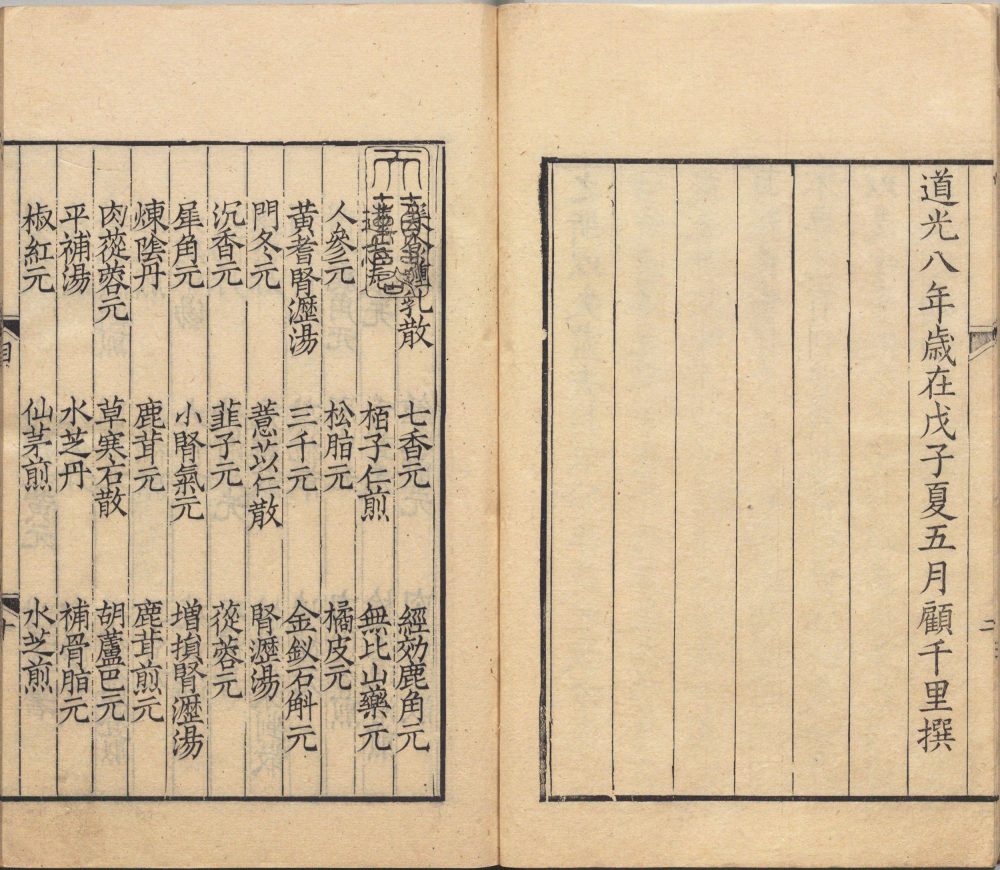 道光八年歳在戊子夏五月顧千里撰
二
乳散 七香元 經効鹿角元
栢子仁煎 無比山藥元
人參元 松脂元 橘皮元
黃耆腎瀝湯 三千元 金釵石斛元
門冬元 薏苡仁散 腎瀝湯
沉香元 韭子元 蓯蓉元
犀角元 小腎氣元 增損腎瀝湯
煉陰丹 鹿茸元 鹿茸煎元
肉蓯蓉元 草寒石散 胡蘆巴元
平補湯 水芝丹 補骨脂元
椒紅元 仙茅煎 水芝煎
目